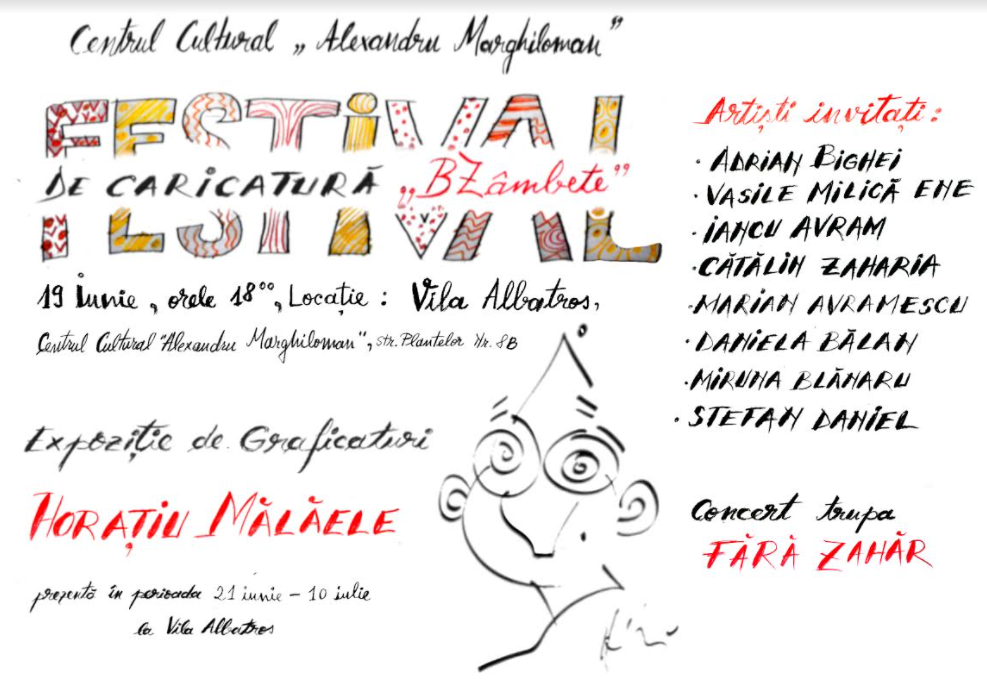 Centrul Cultural „Alexandru Marghiloman”
FESTiVAL
DE CARICATURĂ „BZâmbete”
19 Iunie, orele 18⁰⁰, Locație: Vila Albatros,
Centrul Cultural "Alexandru Marghiloman", str. Plantelor Nr. 8B
Expoziție de Graficaturi
HORAȚIU MĂLĂELE
prezentă în perioada 21 iunie – 10 iulie
la Vila Albatros
Artiști invitați:
· ADRIAN BIGHEI
· VASILE MILICĂ ENE
· IANCU AVRAM
· CĂTĂLIN ZAHARIA
· MARIAN AVRAMESCU
· DANIELA BĂLAN
· MIRUNA BLĂNARU
· STEFAN DANIEL
Concert trupa
FĂRĂ ZAHĂR